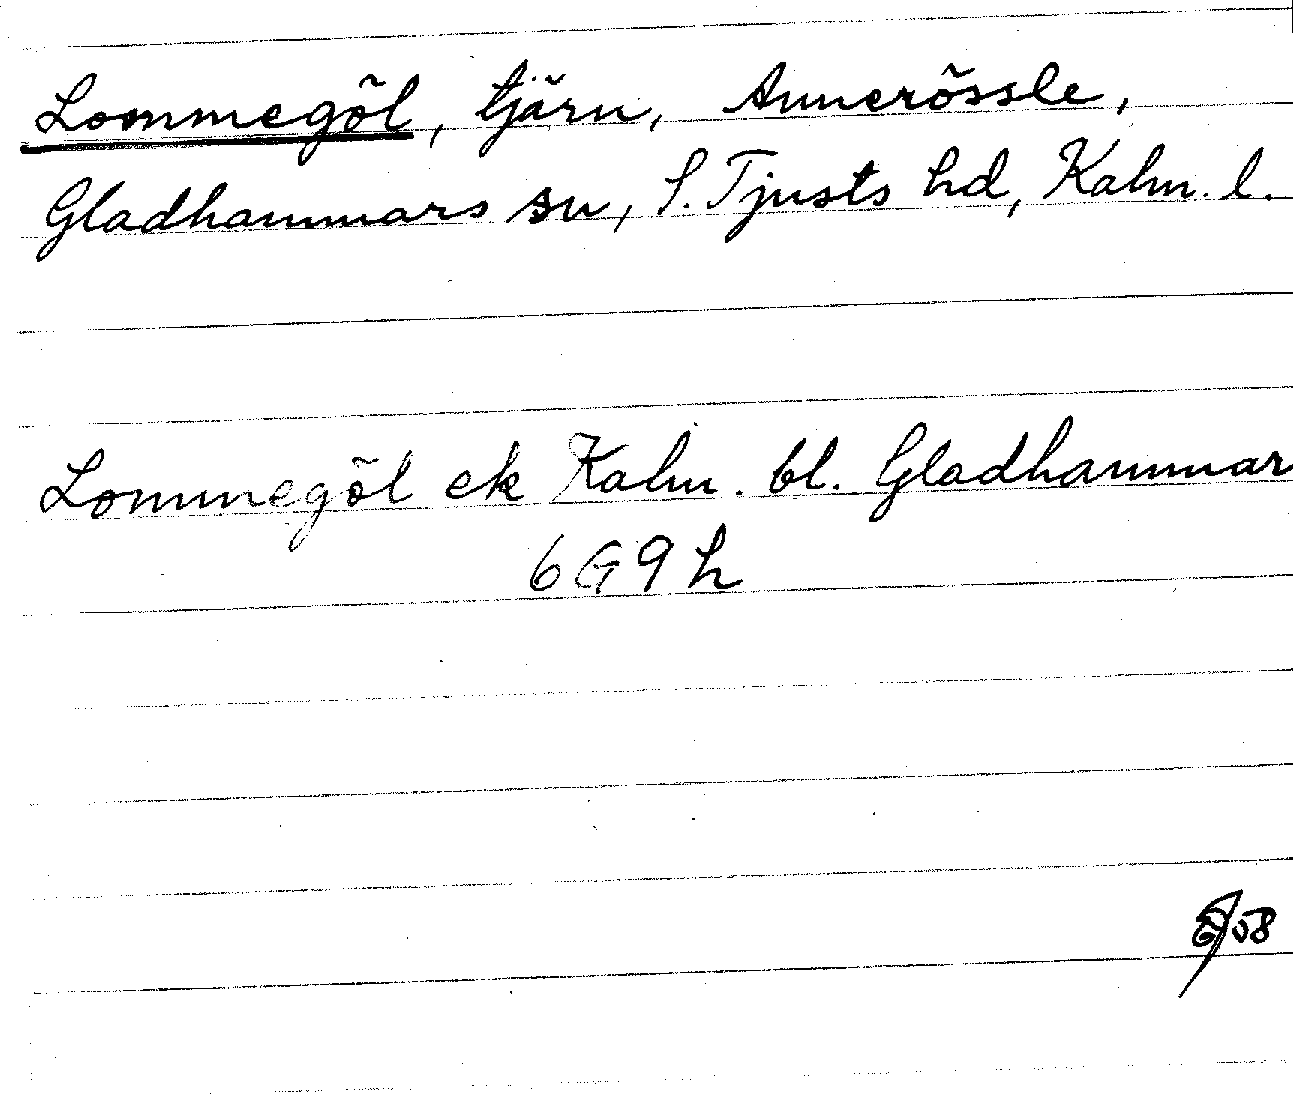 Lommegöl, tjärn, Annerössle,
Gladhammars sn, S. Tjusts hd, Kalm. l.
Lommegöl ek Kalm. bl. Gladhammar
6G9h
58